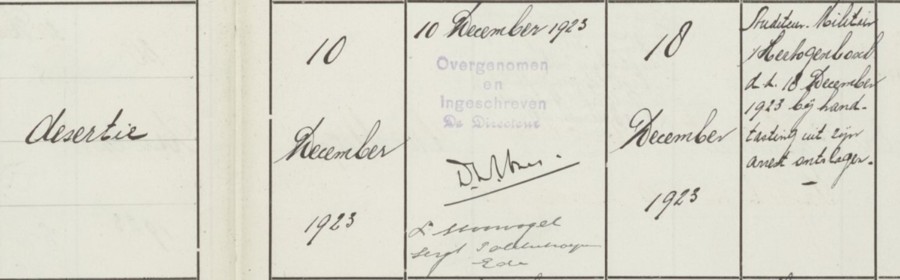 desertie
10
December
1923
10 December 1923
Overgenomen
en
Ingeschreven
De Directeur
Sergt
Ede
18
December
1923
Militair
d.d. 18 December
1923 bij hand-
tasting uit zijn
arrest ontslagen.